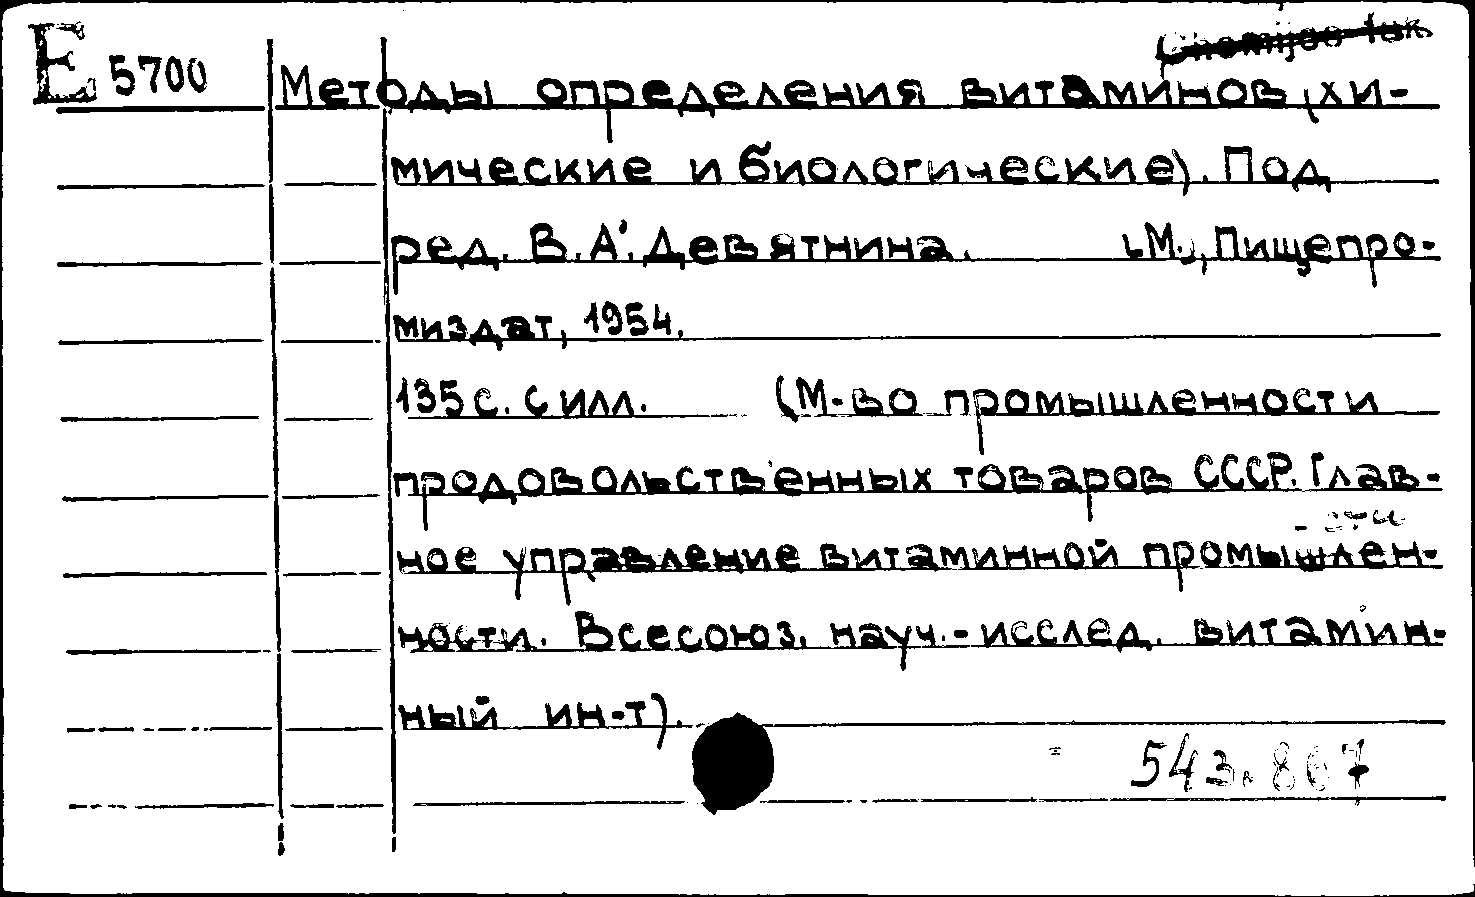 E 5700
Методы определения витаминов (хи-
мические и биологические). Под
ред. В.А. Девятнина. [М.], Пищепро-
миздат, 1954.
135 с. с илл. (М-во промышленности
продовольственных товаров СССР. Глав-
ное управление витаминной промышлен-
ности. Всесоюз. науч.-исслед. витамин-
ный ин-т).
543.867